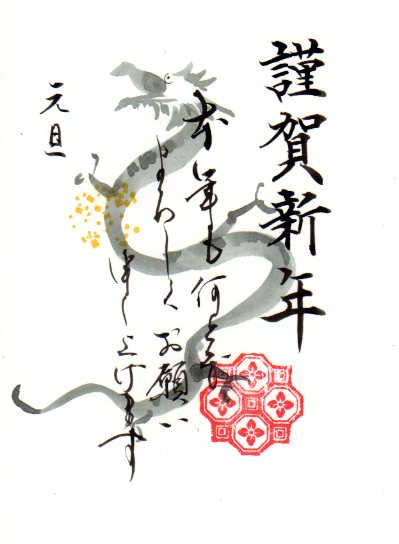 謹賀新年
本年も何とぞ
よろしくお願い
申し上げます
元旦